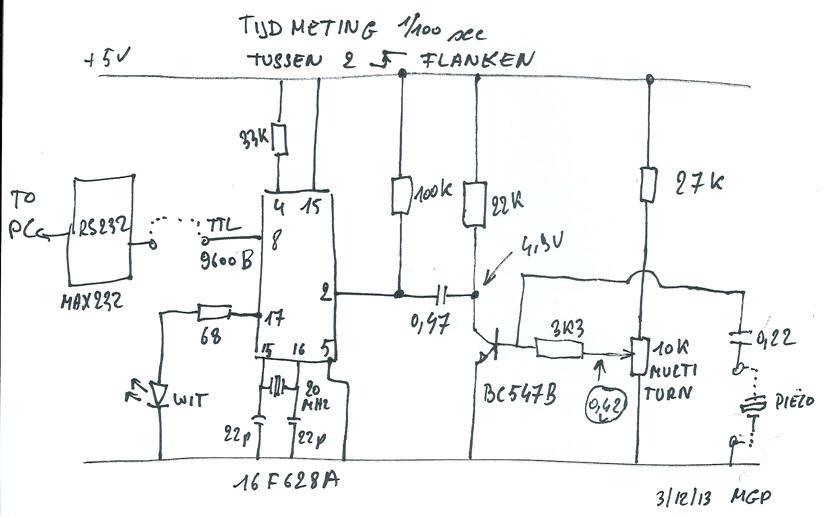 TIJD METING 1/100 sec
TUSSEN 2 FLANKEN
+5V
33K
100K
22K
27K
TO
PC
RS232
MAX232
TTL
9600B
4 15
8
2
17
15 16 5
4,9V
0,47
68
WIT
20
MHZ
22p
22p
3K3
0,42
BC547B
10K
MULTI
TURN
0,22
PIËZO
16F628A
3/12/13 MGP